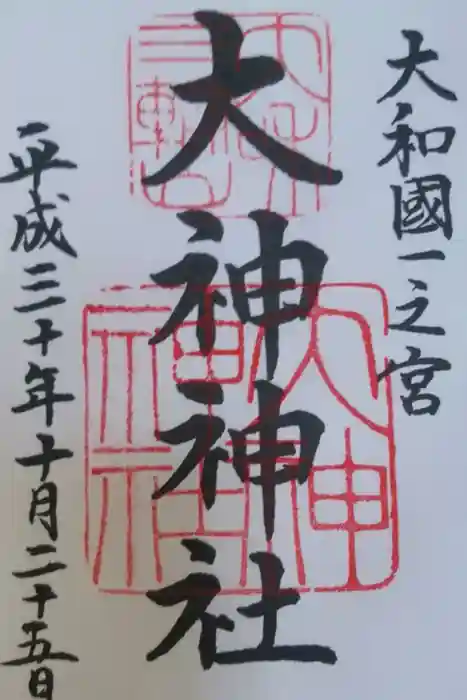 大和國一之宮
大神神社
平成三十年十月二十五日
大神神社